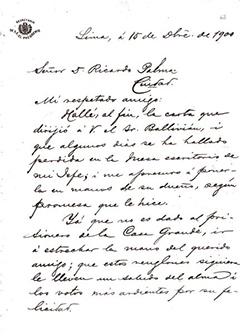 Lima, á 15 de Dbre. de 1900
Señor D. Ricardo Palma
Ciudad.
Mi respetado amigo:
Hallé, al fin, la carta que
dirijió á V. el Sr. Ballivián, i
que algunos días se ha hallado
perdida en la mesa escritorio de
mi Jefe; i me apresuro á poner-
la en manos de su dueño, según
promesa que le hice.
Yá que no es dado al pri-
sionero de la Casa Grande, ir
á estrechar la mano del querido
amigo; que estos renglones siquiera
le lleven un saludo del alma i
los votos más ardientes por su fe-
licidad.